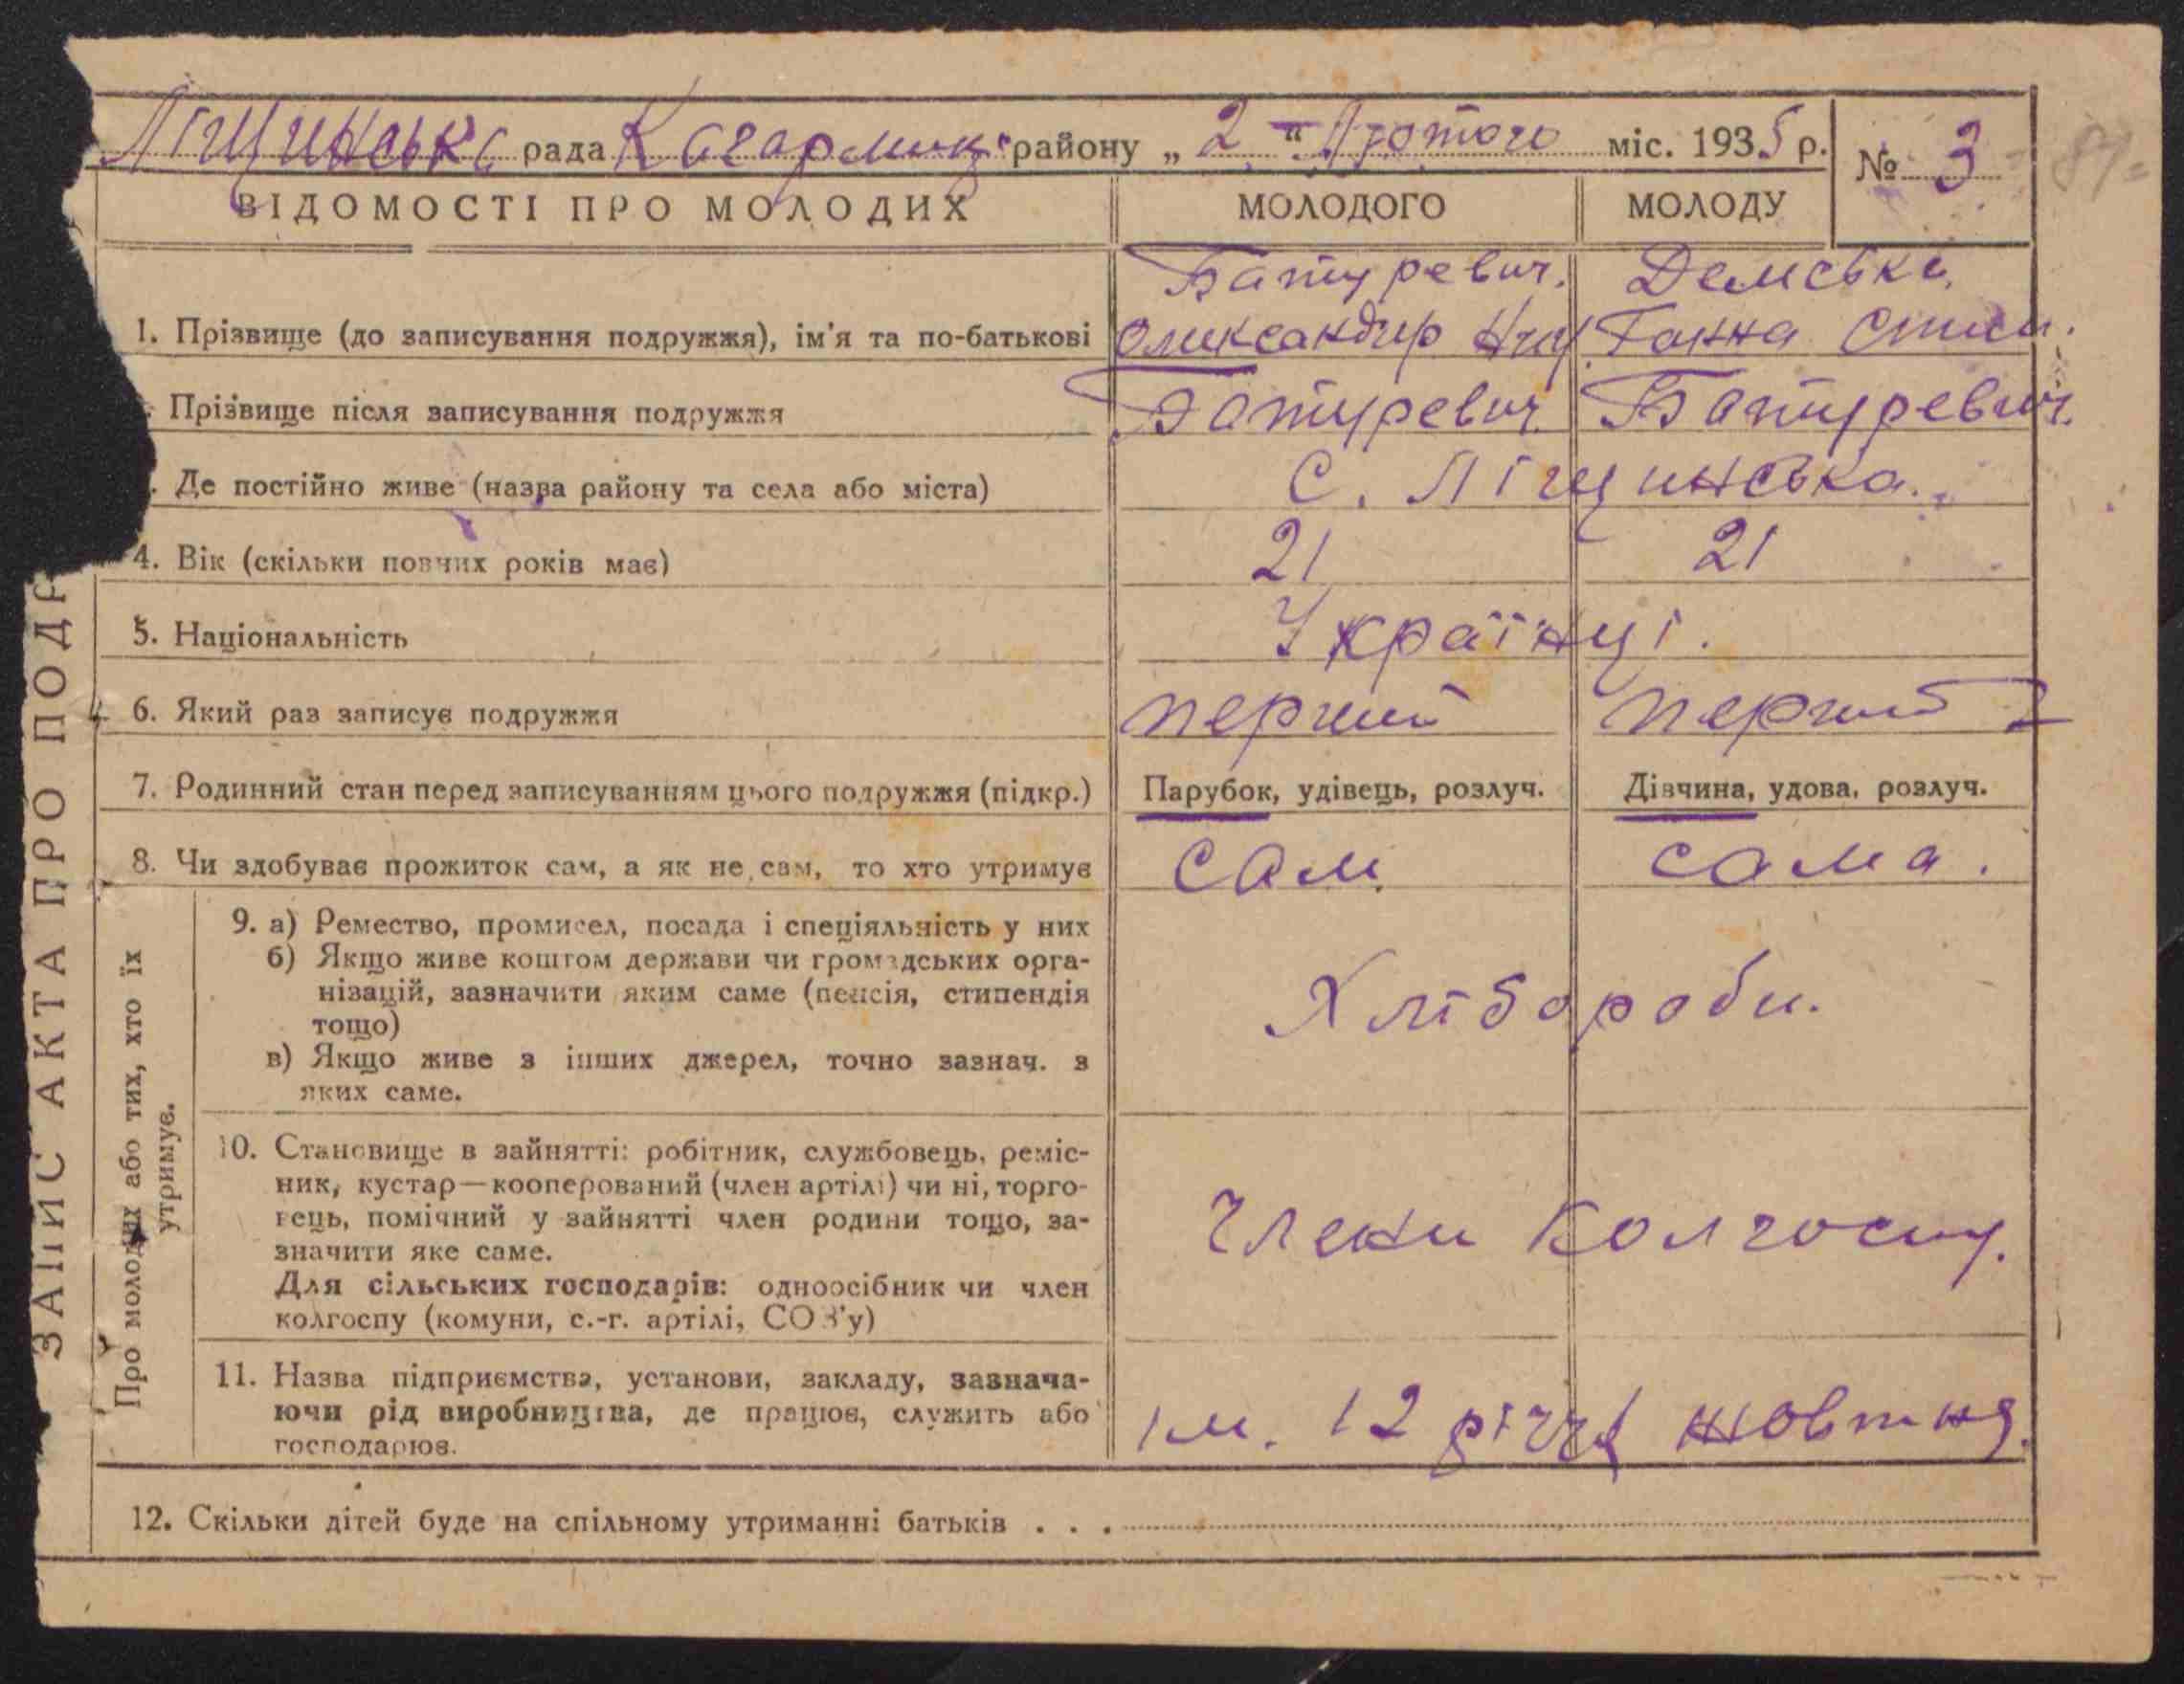 Ліщинська рада Кагарлик району „ 2 " Лютого міс. 1935 р. № 3
ВІДОМОСТІ ПРО МОЛОДИХ МОЛОДОГО МОЛОДУ
Батуревич. Демська
1. Прізвище (до записування подружжя), ім'я та по-батькові Олександир Ганна
Прізвище після записування подружжя Батуревич Батуревич
Де постійно живе (назва району та села або міста) С. Ліщинська.
4. Вік (скільки повних років має) 21 21
5. Національність Українці.
6. Який раз записує подружжя перший перший
7. Родинний стан перед записуванням цього подружжя (підкр.) Парубок, удівець, розлуч. Дівчина, удова, розлуч.
8. Чи здобуває прожиток сам, а як не сам, то хто утримує сам сама.
9. а) Ремество, промисел, посада і спеціяльність у них
б) Якщо живе коштом держави чи громадських орга-
нізацій, зазначити яким саме (пенсія, стипендія
тощо)
Хлібороби.
в) Якщо живе з інших джерел, точно зазнач. з
яких саме.
10. Становище в зайнятті: робітник, службовець, реміс-
ник, кустар—кооперований (член артілі) чи ні, торго-
вець, помічний у зайнятті член родини тощо, за-
значити яке саме.
Члени Колгоспу.
Для сільських господарів: одноосібник чи член
колгоспу (комуни, с.-г. артілі, СОЗ'у)
11. Назва підприємства, установи, закладу, зазнача-
ючи рід виробництва, де працює, служить або
господарює.
ім. 12 річчя жовтня.
12. Скільки дітей буде на спільному утриманні батьків . . .
Про молодих або тих, хто їх
утримує.
ЗАПИС АКТА ПРО ПОДР